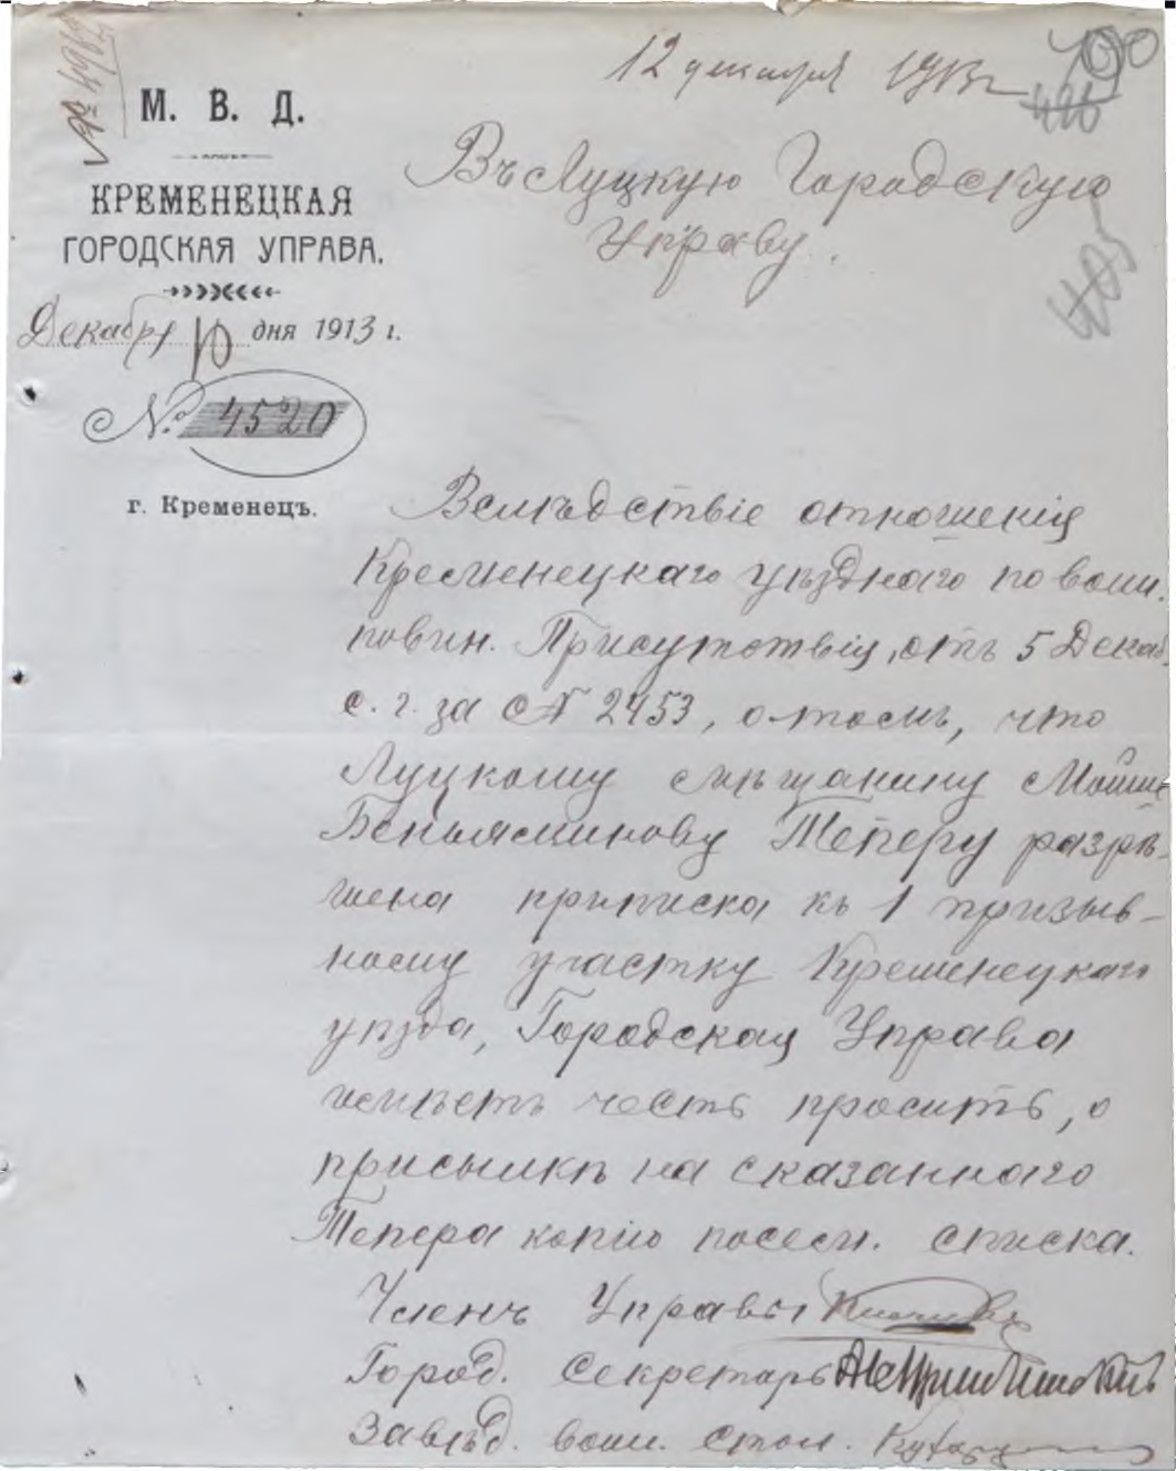 № 4967
12 декабря 1913 г.
400
426
405
М. В. Д.
КРЕМЕНЕЦКАЯ
ГОРОДСКАЯ УПРАВА.
Декабря 10 дня 1913 г.
№ 4520
г. Кременецъ.
Въ Луцкую Городскую
Управу.
Вслѣдствіе отношенія
Кременецкаго уѣзднаго по воин.
повин. Присутствія, отъ 5 Декаб.
с. г. за № 2453, о томъ, что
Луцкому мѣщанину Мошке
Беньяминову Теперу разрѣ-
шена приписка къ 1 призыв-
ному участку Кременецкаго
уѣзда, Городская Управа
имѣетъ честь просить, о
присылкѣ на сказаннаго
Тепера копію посем. списка.
Членъ Управы
Город. Секретарь
Завѣд. воин. стол.